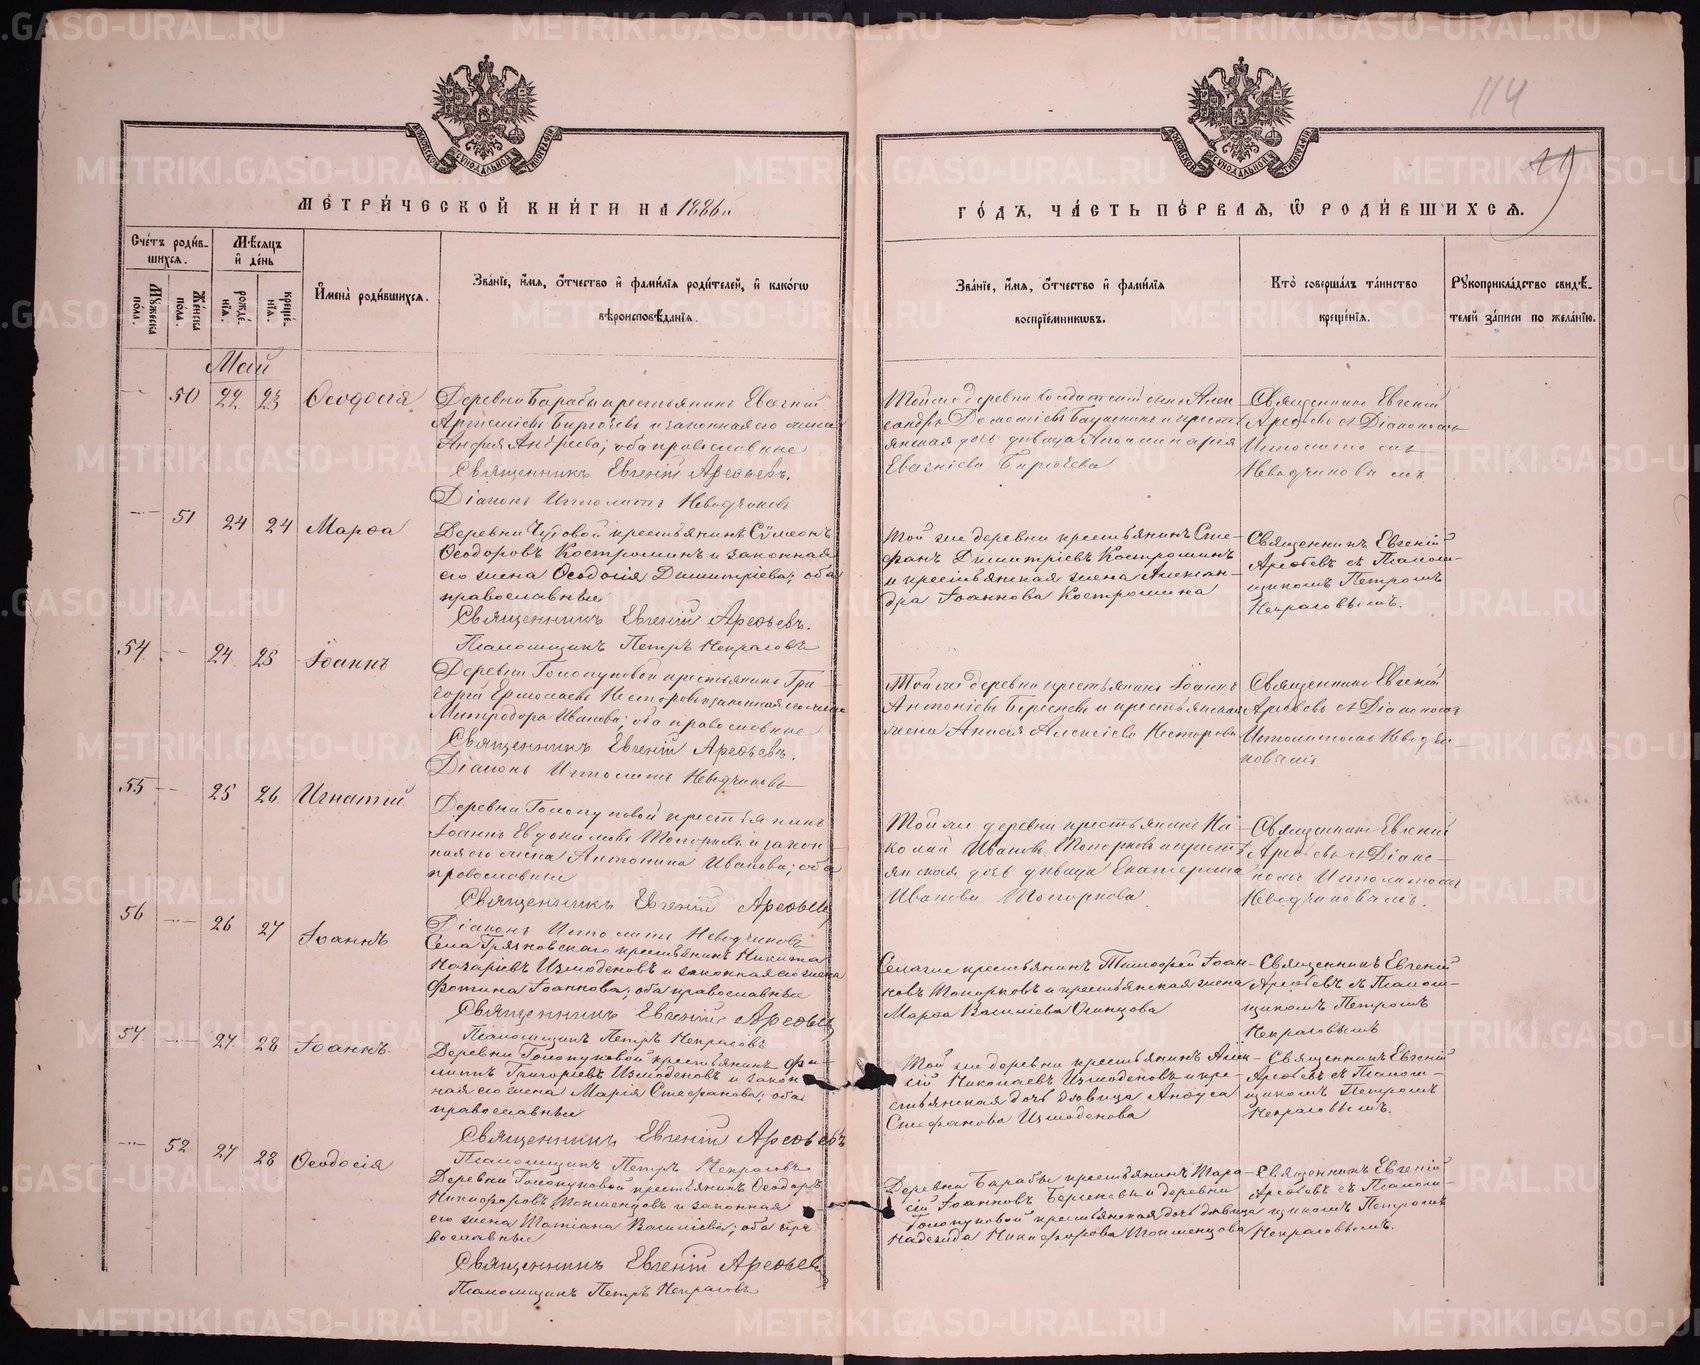 114
19
МЕТРИЧЕСКОЙ КНИГИ НА 1886 й
ГОДЪ, ЧАСТЬ ПЕРВАЯ, Ѿ РОДИВШИХСЯ.
Счетъ родившихся.
Мѣсяцъ и день
Имена родившихся.
Званіе, имя, отчество и фамилія родителей, и какогѡ
вѣроисповѣданія.
Мужеска пола.
Женска пола.
рожденія.
крещенія.
Званіе, имя, отчество и фамилія
воспріемниковъ.
Кто совершалъ таинство
крещенія.
Рукоприкладство свидѣ-
телей записи по желанію.
Май
50 22 23 Ѳеодосія
Деревни Барабы крестьянинъ Евгеній
Артеміевъ Бирючевъ и законная его жена
Андреева; оба православные
Священникъ Евгеній Арефьевъ.
Діаконъ Ипполитъ Неводчиковъ
Той же деревни солдатскій сынъ Алек-
сандръ и кресть-
янская дочь дѣвица Аполлинарія
Евгеніева Бирючева
Священникъ Евгеній
Арефьевъ съ Діакономъ
Ипполитомъ
Неводчиковымъ.
51 24 24 Марѳа
Деревни Чудовой крестьянинъ Сѵмеонъ
Ѳеодоровъ Костроминъ и законная
его жена Ѳеодосія Димитріева; оба
православные
Священникъ Евгеній Арефьевъ.
Псаломщикъ Петръ Некрасовъ
Той же деревни крестьянинъ Сте-
фанъ Димитріевъ Костроминъ
и крестьянская жена Алексан-
дра Іоаннова Костромина
Священникъ Евгеній
Арефьевъ съ Псалом-
щикомъ Петромъ
Некрасовымъ.
54 24 25 Іоаннъ
Деревни Голопуповой крестьянинъ Гри-
горій Ермолаевъ Нестеровъ и законная его жена
Митродора Иванова; оба православные
Священникъ Евгеній Арефьевъ.
Діаконъ Ипполитъ Неводчиковъ
Той же деревни крестьянинъ Іоаннъ
Антоніевъ Берсеневъ и крестьянская
жена Анисія Алексіева Нестерова
Священникъ Евгеній
Арефьевъ съ Діакономъ
Ипполитомъ Неводчи-
ковымъ
55 25 26 Игнатій
Деревни Голопуповой крестьянинъ
Іоаннъ Евдокимовъ Топорковъ и закон-
ная его жена Антонина Иванова; оба
православные
Священникъ Евгеній Арефьевъ
Діаконъ Ипполитъ Неводчиковъ
Той же деревни крестьянинъ Ни-
колай Ивановъ Топорковъ и кресть-
янская дочь дѣвица Екатерина
Иванова Топоркова
Священникъ Евгеній
Арефьевъ съ Діако-
номъ Ипполитомъ
Неводчиковымъ.
56 26 27 Іоаннъ
Села Грязновскаго крестьянинъ Никита
Назаріевъ Измоденовъ и законная его жена
Фотина Іоаннова; оба православные
Священникъ Евгеній Арефьевъ
Псаломщикъ Петръ Некрасовъ
Села же крестьянинъ Тимофей Іоан-
новъ Топорковъ и крестьянская жена
Марѳа Василіева
Священникъ Евгеній
Арефьевъ съ Псалом-
щикомъ Петромъ
Некрасовымъ
57 27 28 Іоаннъ
Деревни Голопуповой крестьянинъ Фи-
липпъ Григоріевъ Измоденовъ и закон-
ная его жена Марія Стефанова; оба
православные
Священникъ Евгеній Арефьевъ
Псаломщикъ Петръ Некрасовъ
Той же деревни крестьянинъ Алек-
сій Николаевъ Измоденовъ и кре-
стьянская дочь дѣвица Анѳуса
Стефанова Измоденова
Священникъ Евгеній
Арефьевъ съ Псалом-
щикомъ Петромъ
Некрасовымъ.
52 27 28 Ѳеодосія
Деревни Голопуповой крестьянинъ Ѳеодоръ
Никифоровъ Токменцовъ и законная
его жена Татіана Василіева; оба пра-
вославные
Священникъ Евгеній Арефьевъ
Псаломщикъ Петръ Некрасовъ
Деревни Барабы крестьянинъ Тара-
сій Іоанновъ Берсеневъ и деревни
Голопуповой крестьянская дочь дѣвица
Надежда Никифорова Токменцова
Священникъ Евгеній
Арефьевъ съ Псалом-
щикомъ Петромъ
Некрасовымъ.
METRIKI.GASO-URAL.RU